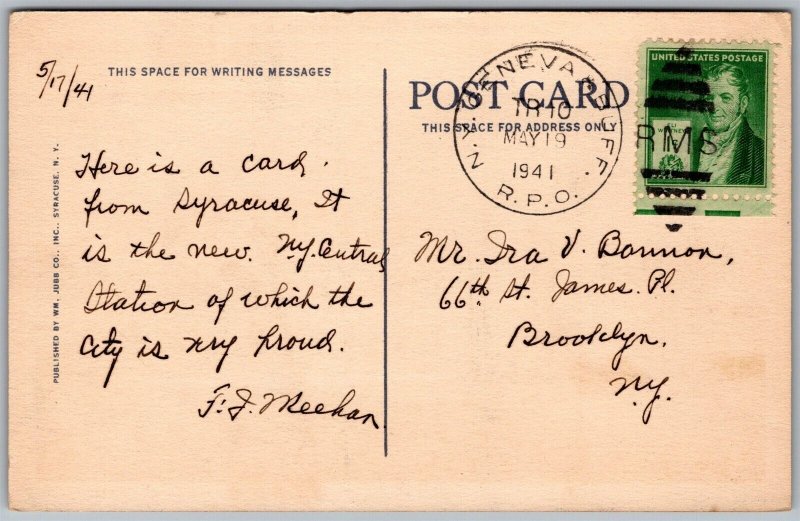 5/17/41
THIS SPACE FOR WRITING MESSAGES
POST CARD
THIS SPACE FOR ADDRESS ONLY
Here is a card.
from Syracuse, It
is the new. N.Y. Central
Station of which the
City is very proud.
F. J. Meehan.
PUBLISHED BY WM. JUBB CO., INC., SYRACUSE, N. Y.
N.Y. GENEVA & BUFF.
TR 10
MAY 19
1941
R.P.O.
UNITED STATES POSTAGE
WHITNEY
RMS
Mr. Ira V. Bannon,
66th St. James. Pl.
Brooklyn.
N.Y.